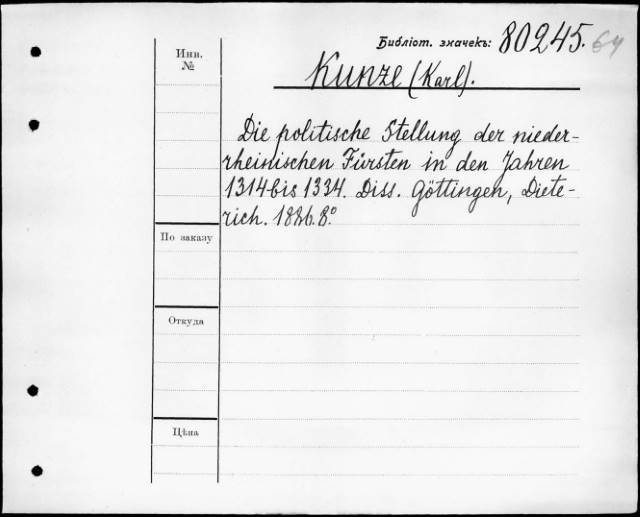 Библіот. значекъ: 80245. 64
Инв. №
Kunze (Karl).
Die politische Stellung der nieder-
rheinischen Fürsten in den Jahren
1314 bis 1334. Diss. Göttingen, Diete-
rich. 1886. 8º.
По заказу
Откуда
Цѣна